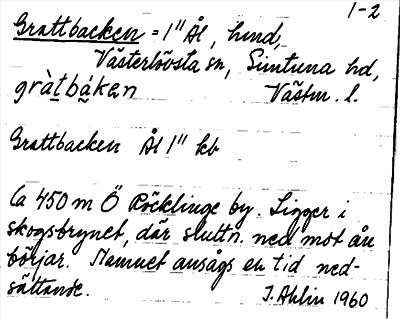 1-2
Grattbacken = 1" Ål, hmd,
Västerlövsta sn, Simtuna hd,
gràt̠bák̠en Västm. l.
Grattbacken Ål 1" kb
Ca 450 m Ö Röcklinge by. Ligger i
skogsbrynet, där sluttn. ned mot ån
börjar. Namnet ansågs en tid ned-
sättande. J. Ahlin 1960